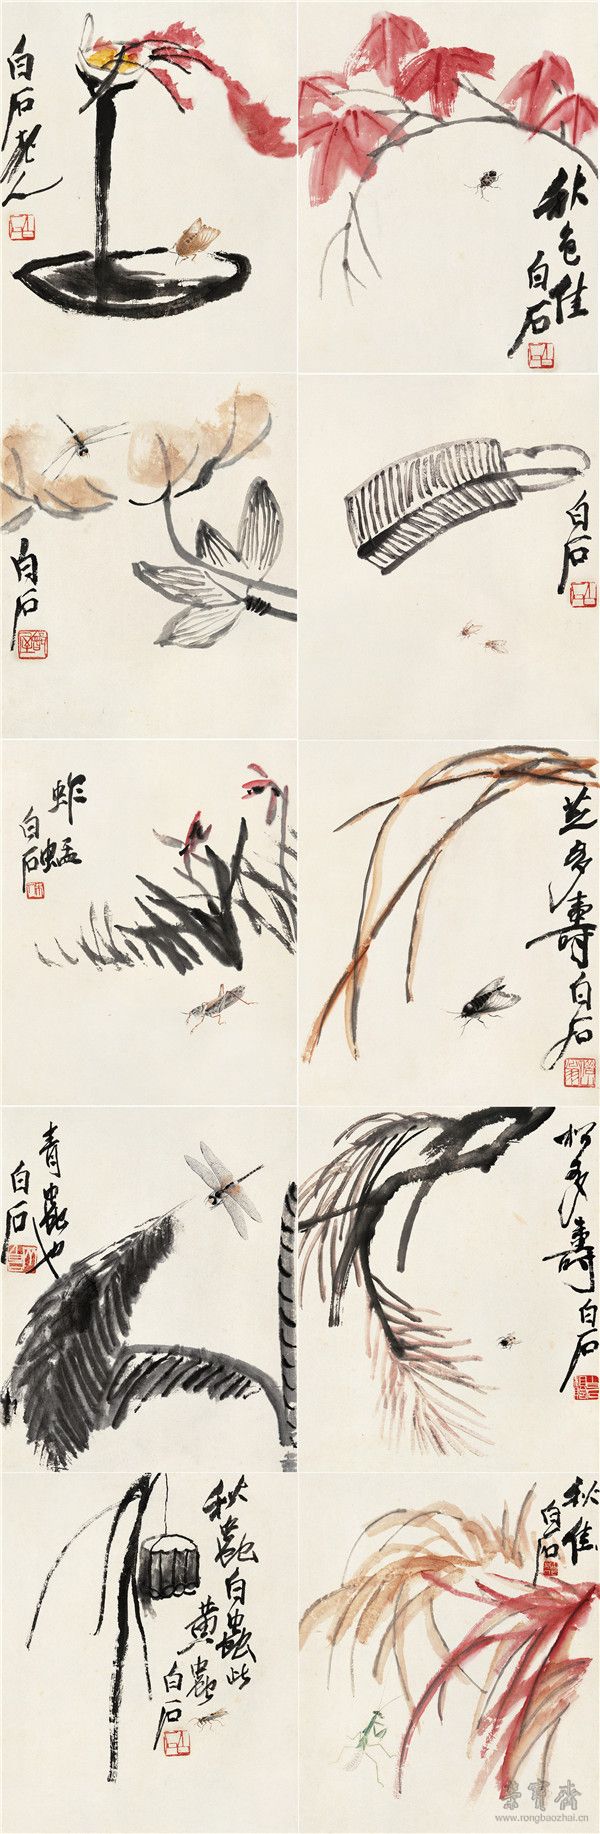 白石老人
秋色佳
白石
白石
白石
蚱蜢
白石
芝多壽白石
青蟲也
白石
松多壽白石
秋蟲白蟲此
黃蟲
白石
秋佳
白石
榮寶齋
www.rongbaozhai.cn